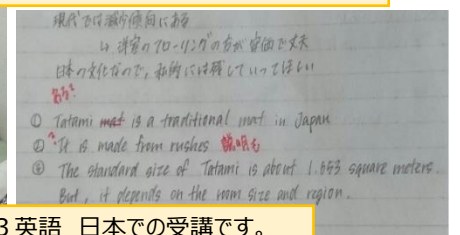 現代では減少傾向にある
↳ 洋室のフローリングの方が安価で丈夫
日本の文化なので、私的には残していってほしい
ある?
① Tatami mat is a traditional mat in Japan
② It is made from rushes 説明も
③ The standard size of Tatami is about 1.653 square meters.
But, it depends on the room size and region.
3 英語 日本での受講です。